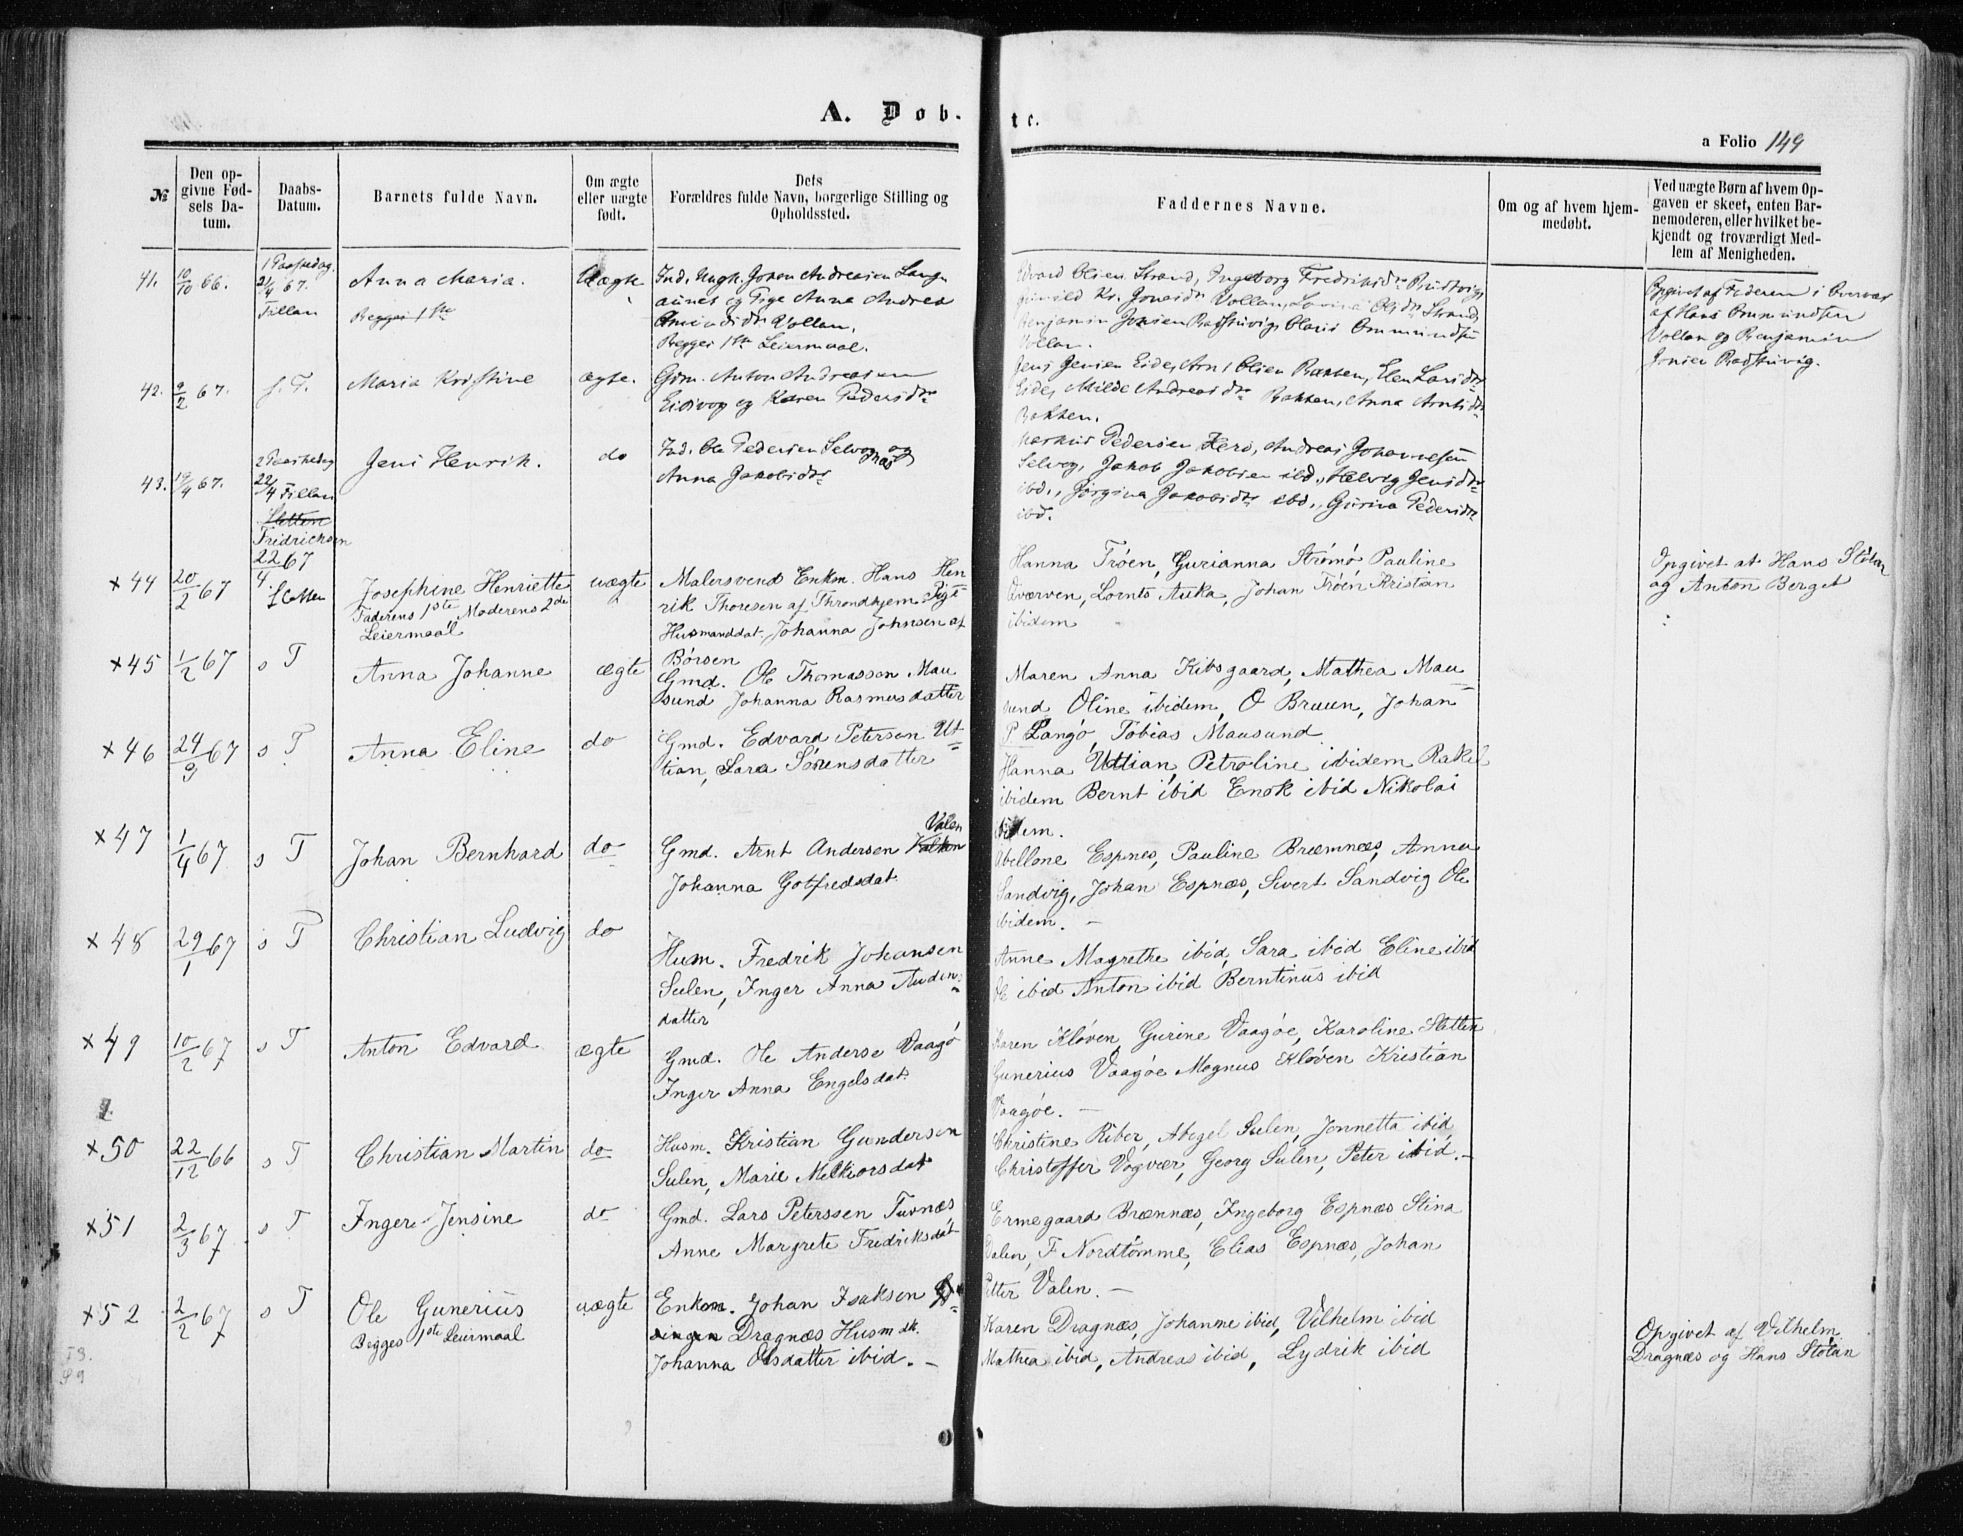 A. Døb. te.
a Folio 149
№
Den op-
givne Fød-
sels Da-
tum.
Daabs-
Datum.
Barnets fulde Navn.
Om ægte
eller uægte
født.
Dets
Forældres fulde Navn, borgerlige Stilling og
Opholdssted.
Faddernes Navne.
Om og af hvem hjem-
medøbt.
Ved uægte Børn af hvem Op-
gaven er skeet, enten Bar-
nemoderen, eller hvilket be-
kjendt og troværdigt Med-
lem af Menigheden.
41. 10/10 66.
1 Paaskedag
21/4 67.
Fillan
Anna Maria.
Begges 1ste
Uægte
Ind. Ungk. Johan Andreasen
og Pige Anna Andrea
Vollan.
Begges 1ste Leiermaal.
Edvard Olsen Strand, Ingeborg Fredriksdtr
Vollan, Olsdtr Strand
Benjamin Jonsen
Vollan.
Opgivet af Faderen i Overvær
af Hans
Vollan og Benjamin
Jonsen
42. 9/2 67. s. T.
Maria Kristine
ægte.
Gm. Anton Andreasen
og Karen Pedersdtr
Jens Jensen Eide, Olsen Bakken, Elen Larsdtr
Eide, Milde Andreasdtr Bakken, Anna
Bakken.
43. 19/4 67.
2 Paaskedag
22/4 Fillan
Jens Henrik.
do
Ind. Ole Pedersen og
Anna Jakobsdtr
Markus Pedersen, Andreas Johannesen
Selvog, Jakob Jakobsen ibd., Helvig Jensdtr
ibd., Jørgina Jakobsdtr ibd., Gurina Pedersdtr
ibd.
Sletten
22/4 67
Sletten
×44 20/2 67
Josephine Henriette
Faderens 1ste Moderens 2de
Leiermaal
uægte
Malersvend Enkm. Hans Hen
rik Thoresen af Throndhjem Pige
Husmanddat. Johanna Johnsen af
Børsen
Hanna Trøen, Gurianna Strømø Pauline
Overven, Lornts Auka, Johan Trøen Kristan
ibidem
Opgivet at Hans Stølan
og Anton Berget
×45 1/2 67 s T
Anna Johanne
ægte
Gmd. Ole Thomassen Mau
sund Johanna Rasmusdatter
Maren Anna Kibsgaard, Mathea Mau
sund Oline ibidem, O Bruun, Johan
P Langø, Tobias Mausund
×46 24/3 67 s T
Anna Eline
do
Gmd. Edvard Petersen Ut
tian, Sara Sörensdatter
Hanna Uttian, Petroline ibidem Rakel
ibidem Bernt ibid Enok ibid Nikolai
ibidem.
×47 1/4 67 s T
Johan Bernhard
do
Gmd. Arnt Andersen Valen
Johanna Gotfredsdat
Abellone Espnes, Pauline Bræmnæs, Anna
Sandvig, Johan Espnæs, Sivert Sandvig Ole
ibidem. —
×48 29/1 67 s T
Christian Ludvig
do
Hum. Fredrik Johansen
Sulen, Inger Anna Audin-
datter
Anne Magrethe ibid, Sara ibid Eline ibid
Ole ibid Anton ibid Berntinus ibid
×49 10/2 67 s T
Anton Edvard
ægte
Gmd. Ole Anderse Vaagö
Inger Anna Engelsdat.
Karen Kløven, Gurine Vaagøe, Karoline Sletten
Gunerius Vaagøe Magnus Kløven Kristian
Vaagøe. —
×50 22/12 66 s T
Christian Martin
do
Husm. Kristian Gundersen
Sulen, Marie Melkiorsdat
Christine Riber, Abegel Sulen, Jonnetta ibid
Christoffer Vogvær, Georg Sulen, Peter ibid. —
×51 2/3 67 s T
Inger Jensine
do
Gmd. Lars Peterssen Tuvnæs
Anne Margrete Fredriksdat
Ermegaard Brænnæs, Ingeborg Espnæs Stina
Valen, F. Nordtømme, Elias Espnæs, Johan
Petter Valen. —
×52 2/2 67 s T
Ole Gunerius
Begges 1ste Leiermaal
uægte
Enkem. Johan Isaksen
Dragnæs Husm dt.
Johanna Olsdatter ibid. —
Karen Dragnæs, Johanne ibid, Vilhelm ibid
Mathea ibid, Andreas ibid, Lydrik ibid
Opgivet af Vilhelm
Dragnæs og Hans Stølan